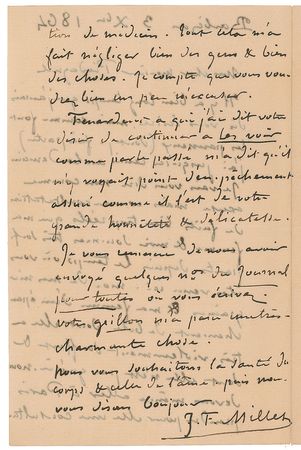 tion de médecin. Tout cela m'a
fait négliger bien des gens & bien
des choses. Je compte que vous vou-
drez bien un peu m'excuser.
à qui j'ai dit votre
désir de continuer à les voir
comme par le passé m'a dit qu'il
n'y voyait point d'empêchement
assuré comme il l'est de votre
grande honnêteté & délicatesse.
Je vous remercie de nous avoir
envoyé quelques nos du Journal
pour toutes où vous écrivez
votre grillon m'a paru une très-
charmante chose.
nous vous souhaitons la santé du
corps & celle de l'âme puis nous
vous disons bonjour
J. F. Millet